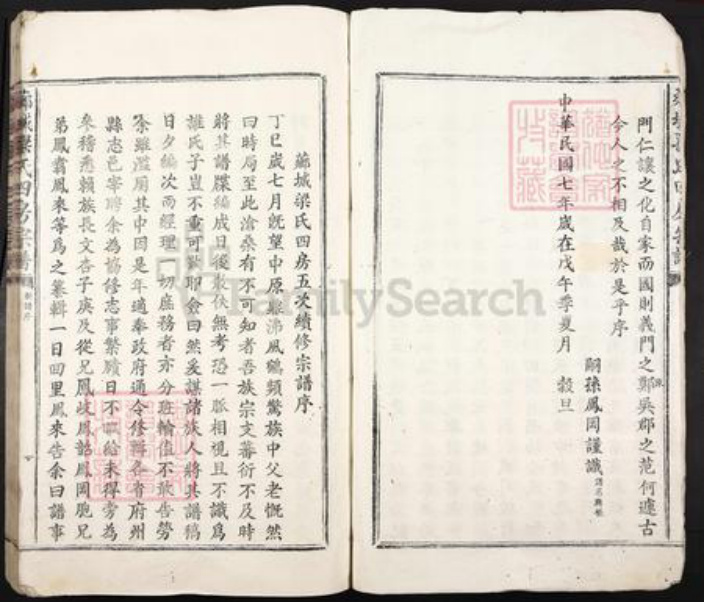 門仁讓之化自家而國則義門之鄭吳郡之范何遽古
今人之不相及哉於是乎序
中華民國七年歲在戊午季夏月 穀旦
嗣孫鳳岡謹識
蕲城梁氏四房五次續修宗譜序
丁巳歲七月既望中原鼎沸風鶴頻驚族中父老慨然
曰時局至此滄桑有不可知者吾族宗支蕃衍不及時
將其譜牒編成日後散佚無考恐一脈相視且不識爲
誰氏子豈不重可歎耶僉曰然爰謀諸族人將其譜稿
日夕編次而經理一切庶務者亦分班輪值不敢告勞
余雖濫廁其中因是年適奉政府通令修輯各省府州
縣志邑宰聘余為協修志事繁賾日不暇給未得旁為
參稽悉賴族長文杏子庚及從兄鳳岐鳳韶鳳岡胞兄
弟鳳翥鳳來等爲之纂輯一日回里鳳來告余曰譜事
梁氏四房宗譜
FamilySearch